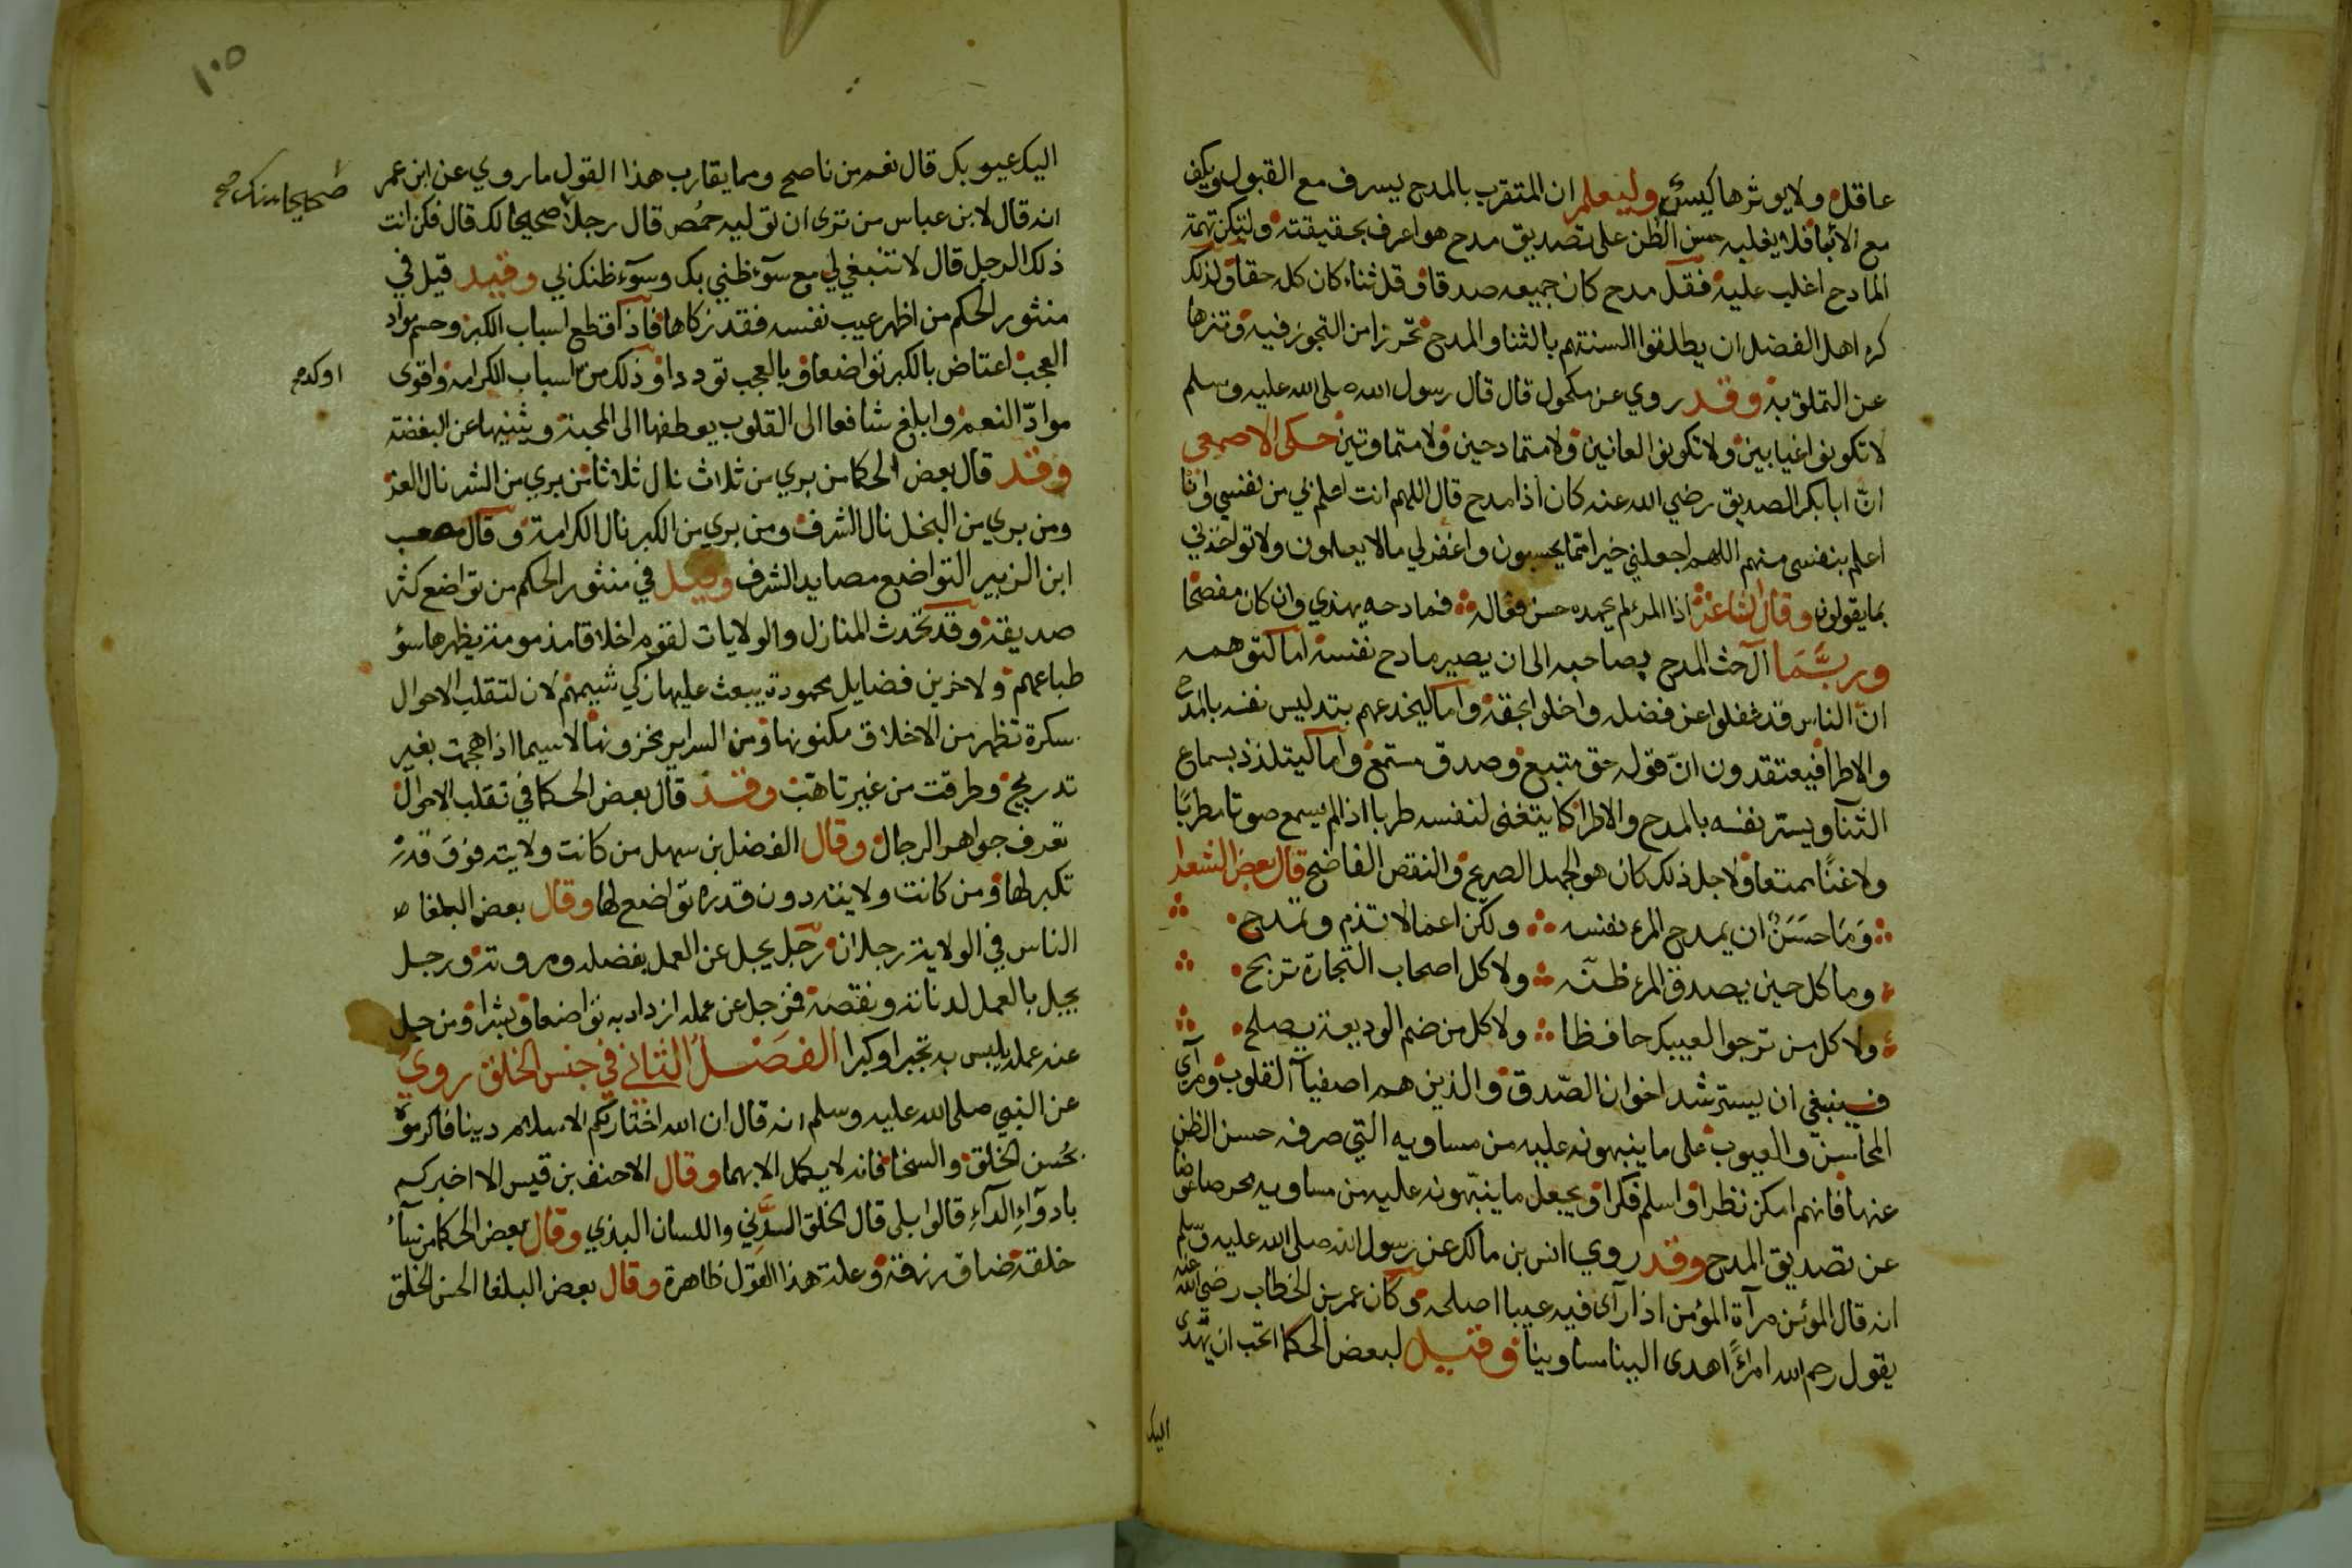 عاقل ولا يوثرها كيس وليعلم ان المتقرب بالمدح يسرف مع القبول ويكف
مع الابا فلا يغلبه حسن الظن على تصديق مدح هو اعرف بحقيقته ولتكن تهمة
المادح اغلب عليه فقل مدح كان جميعه صدقا وقل ثناء كان كله حقا ولذلك
كره اهل الفضل ان يطلقوا السنتهم بالثنا والمدح تحرزا من التجوز فيه وتنزها
عن التملق به وقد روي عن مكحول قال قال رسول الله صلى الله عليه وسلم
لا تكونوا عيابين ولا تكونوا لعانين ولا متمادحين ولا متماوتين حكى الاصمعي
انّ ابا بكر الصديق رضي الله عنه كان اذا مدح قال اللهم انت اعلم لي من نفسي وانا
اعلم بنفسي منهم اللهم اجعلني خيرا مما يحسبون واغفر لي ما لا يعلمون ولا تواخذني
بما يقولون وقال الشاعر اذا المرء لم يمدحه حسن فعاله فمادحه يهذي وان كان مفصحا
وربّما آل حث المدح بصاحبه الى ان يصير مادح نفسه اما لتوهمه
انّ الناس قد غفلوا عن فضله واخلوا بحقه واما ليخدعهم بتدليس نفسه بالمدح
والاطرا فيعتقدون انّ قوله حق متبع وصدق مستمع واما ليتلذذ بسماع
الثنآ ويستر نفسه بالمدح والاطرا كما يتغنى لنفسه طربا اذا لم يسمع صوتا مطربًا
ولا غنًا ممتعا ولاجل ذلك كان هو الجهل الصريح والنقص الفاضح قال بعض الشعرا
وَمَا حَسَنٌ ان يمدح المرء نفسه ولكن اعمالا تذم وتمدح
وما كل حين يصدق المرء ظنّه ولا كل اصحاب التجارة تربح
ولا كل من ترجو لغيبك حافظا ولا كل من ضم الوديعة يصلح
فينبغي ان يسترشد اخوان الصّدق والذين هم اصفيآ القلوب ومرآى
المحاسن والعيوب على ما ينبهونه عليه من مساويه التي صرفه حسن الظن
عنها فانهم امكن نظرا واسلم فكرا ويجعل ما ينبّهونه عليه من مساويه عوضا
عن تصديق المدح وقد روي انس بن مالك عن رسول الله صلى الله عليه وسلم
انه قال المؤمن مرآة المؤمن اذا رآى فيه عيبا اصلحه وكان عمر بن الخطاب رضي الله عنه
يقول رحم الله امراً اهدى الينا مساوينا وقيل لبعض الحكما اتحب ان تهدى
اليك
١٠٥
اليك عيوبك قال نعم من ناصح ومما يقارب هذا القول ما روي عن ابن عمر
انه قال لابن عباس من ترى ان توليه حمُص قال رجلا صحيحا لك قال فكن انت
صحيحا منك صح
ذلك الرجل قال لا تنبغي لي مع سوٓء ظني بك وسوٓء ظنك لي وقد قيل في
منثور الحكم من اظهر عيب نفسه فقد زكاها فاذا قطع اسباب الكبر وحسم مواد
العجب اعتاض بالكبر تواضعا وبالعجب توددا وذلك من اسباب الكرامة واقوى
اوكد صح
موادّ النعم وابلغ شافعا الى القلوب يعطفها الى المحبة ويثنيها عن البغضة
وقد قال بعض الحكما من بري من ثلاث نال ثلاثا من بري من الشر نال العز
ومن بري من البخل نال الشرف ومن بري من الكبر نال الكرامة وقال مصعب
ابن الزبير التواضع مصايد الشرف وقيل في منثور الحكم من تواضع كثر
صديقه وقد تحدث المنازل والولايات لقوم اخلاقا مذمومة يظهرها سؤ
طباعهم ولاخرين فضايل محمودة يبعث عليها زكي شيمهم لان لتقلب الاحوال
سكرة تظهر من الاخلاق مكنونها ومن السراير مخزونها لا سيما اذا هجمت بغير
تدريج وطرقت من غير تاهب وقد قال بعض الحكما في تقلب الاحوال
تعرف جواهر الرجال وقال الفضل بن سهل من كانت ولايته فوق قدره
تكبر لها ومن كانت ولايته دون قدره تواضع لها وقال بعض البلغا
الناس في الولاية رجلان رجل يجل عن العمل بفضله ومروته ورجل
يجل بالعمل لدناته ونقصه فمن جل عن عمله ازداد به تواضعا وبشرا ومن جل
عنه عمله يلبس به تجبرا وكبرا الفصل الثاني في حسن الخلق روي
عن النبي صلى الله عليه وسلم انه قال ان الله اختار لكم الاسلام دينا فاكرموه
بحُسن الخلق والسخا فانه لا يكمل الا بهما وقال الاحنف بن قيس الا اخبركم
بادوآءِ الدآءِ قالوا بلى قال الخلق الدني واللسان البذي وقال بعض الحكما من سآء
خلقه ضاق رزقه وعلة هذا القول ظاهرة وقال بعض البلغا الحسن الخلق